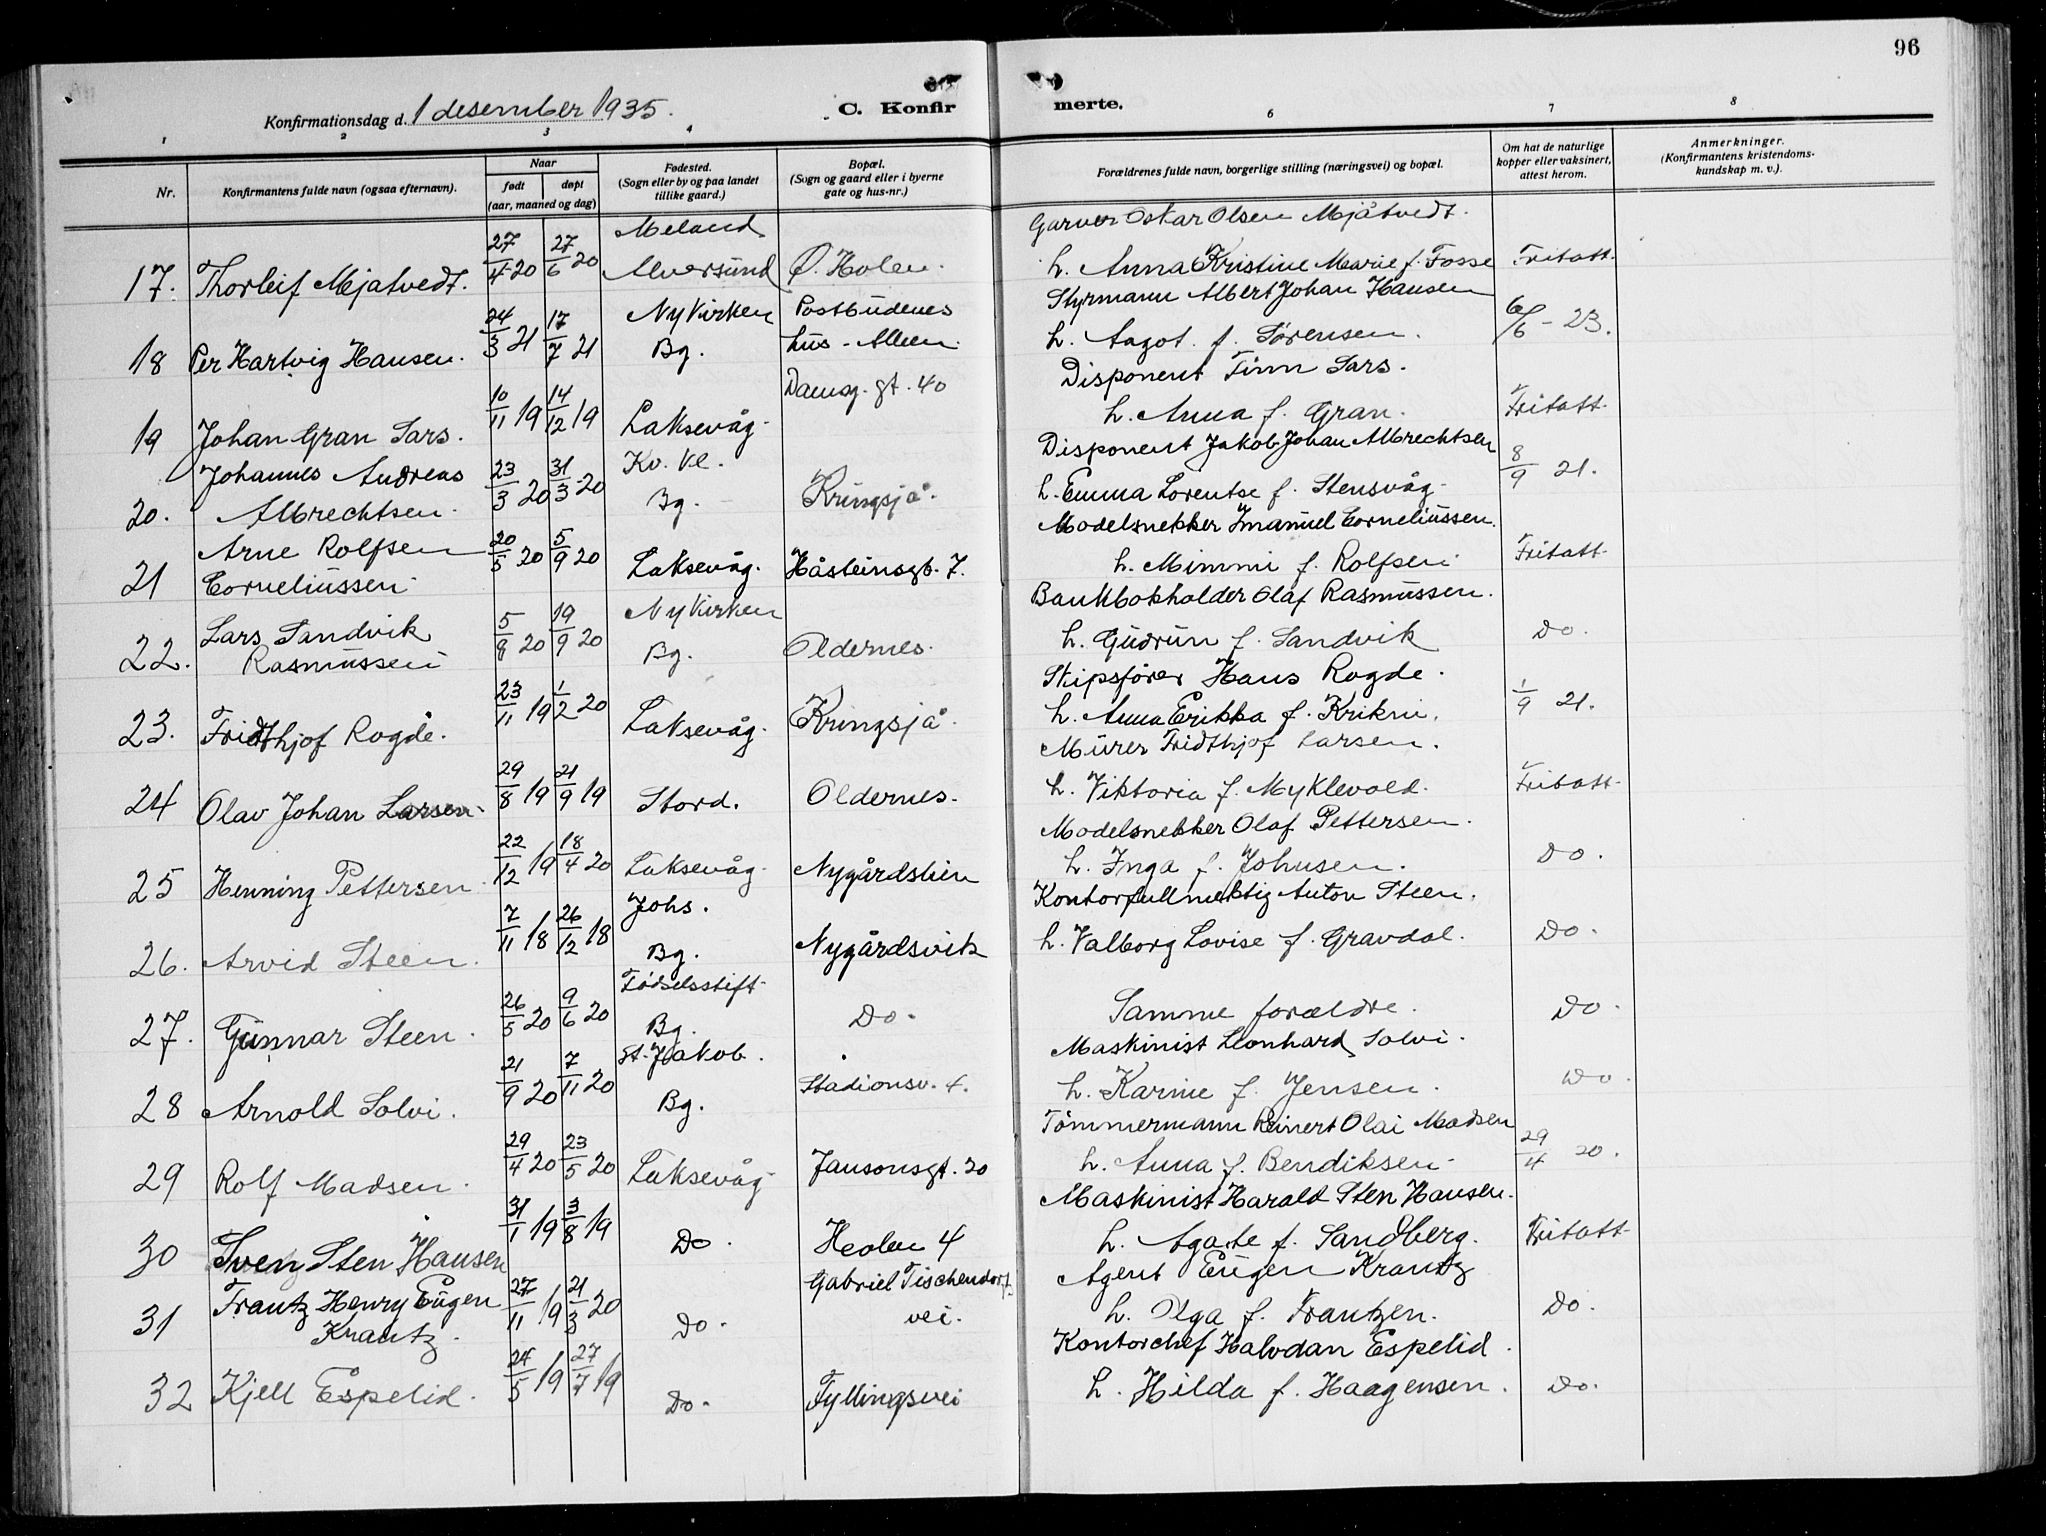 96
Konfirmationsdag d. 1 desember 1935.
C. Konfirmerte.
1 2 3 4 6 7 8
Nr.
Konfirmantens fulde navn (ogsaa efternavn).
Naar
født døpt
(aar, maaned og dag)
Fødested.
(Sogn eller by og paa landet
tillike gaard.)
Bopæl.
(Sogn og gaard eller i byerne
gate og hus-nr.)
Forældrenes fulde navn, borgerlige stilling (næringsvei) og bopæl.
Om hat de naturlige
kopper eller vaksinert,
attest herom.
Anmerkninger.
(Konfirmantens kristendoms-
kundskap m. v.).
Meland Garver Oskar Olsen Mjåtvedt.
17. Thorleif Mjatvedt. 27/4-20 27/6 20 Alversund Ø. Holen. h. Anna Kristine Marie f. Fosse Fritatt.
Nykirken Postbudenes Styrmann Albert Johan Hansen
18 Per Hartvig Hansen. 24/3 21 17/7 21 Bg. hus - Alleen. h. Aagot f. Sørensen. 6/6 - 23.
Damsg. gt. 40 Disponent Finn Sars.
19 Johan Gran Sars. 10/11 19 14/12 19 Laksevåg. h. Anna f. Gran. Fritatt.
Johannes Andreas Kv. kl. Disponent Jakob Johan Albrechtsen
20. Albrechtsen. 23/3 20 31/3-20 Bg. Kringsjå. h. Emma Lorentse f. Stensvåg. 8/9 21.
Arne Rolfsen Modelsnekker Imanuel Corneliussen.
21 Corneliussen. 20/5 20 5/9 20 Laksevåg. Håsteinsgt. 7. h. Mimmi f. Rolfsen Fritatt.
Lars Sandvik Nykirken Bankbokholder Olaf Rasmussen.
22. Rasmussen 5/8 20 19/9 20 Bg. Oldernes. h. Gudrun f. Sandvik Do.
Skipsfører Hans Rogde.
23. Fridthjof Rogde. 23/11 19 1/2 20 Laksevåg. Kringsjå. h. Anna Erikka f. Krikni. 1/9 21.
Murer Fridthjof Larsen.
24 Olav Johan Larsen. 29/8 19 21/9 19 Stord. Oldernes. h. Viktoria f. Myklevold. Fritatt.
Modelsnekker Olaf Pettersen.
25 Henning Pettersen. 22/12 19 18/4 20 Laksevåg. Nygårdslien h. Inga f. Johnsen. Do.
Johs. Kontorfullmektig Anton Steen.
26. Arvid Steen. 7/11 18 26/12 18 Bg. Nygårdsvik h. Valborg Lovise f. Gravdal. Do.
Fødselsstift.
27. Gunnar Steen. 26/5 20 9/6 20 Bg. Do. Samme forældre. Do.
St. Jakob. Maskinist Leonhard Solvi.
28 Arnold Solvi. 21/9 20 7/11 20 Bg. Stadionsv. 4. h. Karine f. Jensen. Do.
Tømmermann Reinert Olai Madsen
29 Rolf Madsen. 29/4 20 23/5 20 Laksevåg. Jansonsgt. 20 h. Anna f. Bendiksen. 29/4 20.
Maskinist Harald Sten Hansen.
30 Sven Sten Hansen 31/1 19 3/8 19 Do. Heolen 4 h. Agate f. Sandberg. Fritatt.
Frantz Henry Eugen Gabriel Tischendorf- Agent Eugen Krantz
31 Krantz. 27/11 19 21/3 20 Do. vei. h. Olga f. Frantzen. Do.
Kontorchef Halvdan Espelid.
32 Kjell Espelid. 24/5 19 27/7 19 Do. Fyllingsvei h. Hilda f. Haagensen. Do.